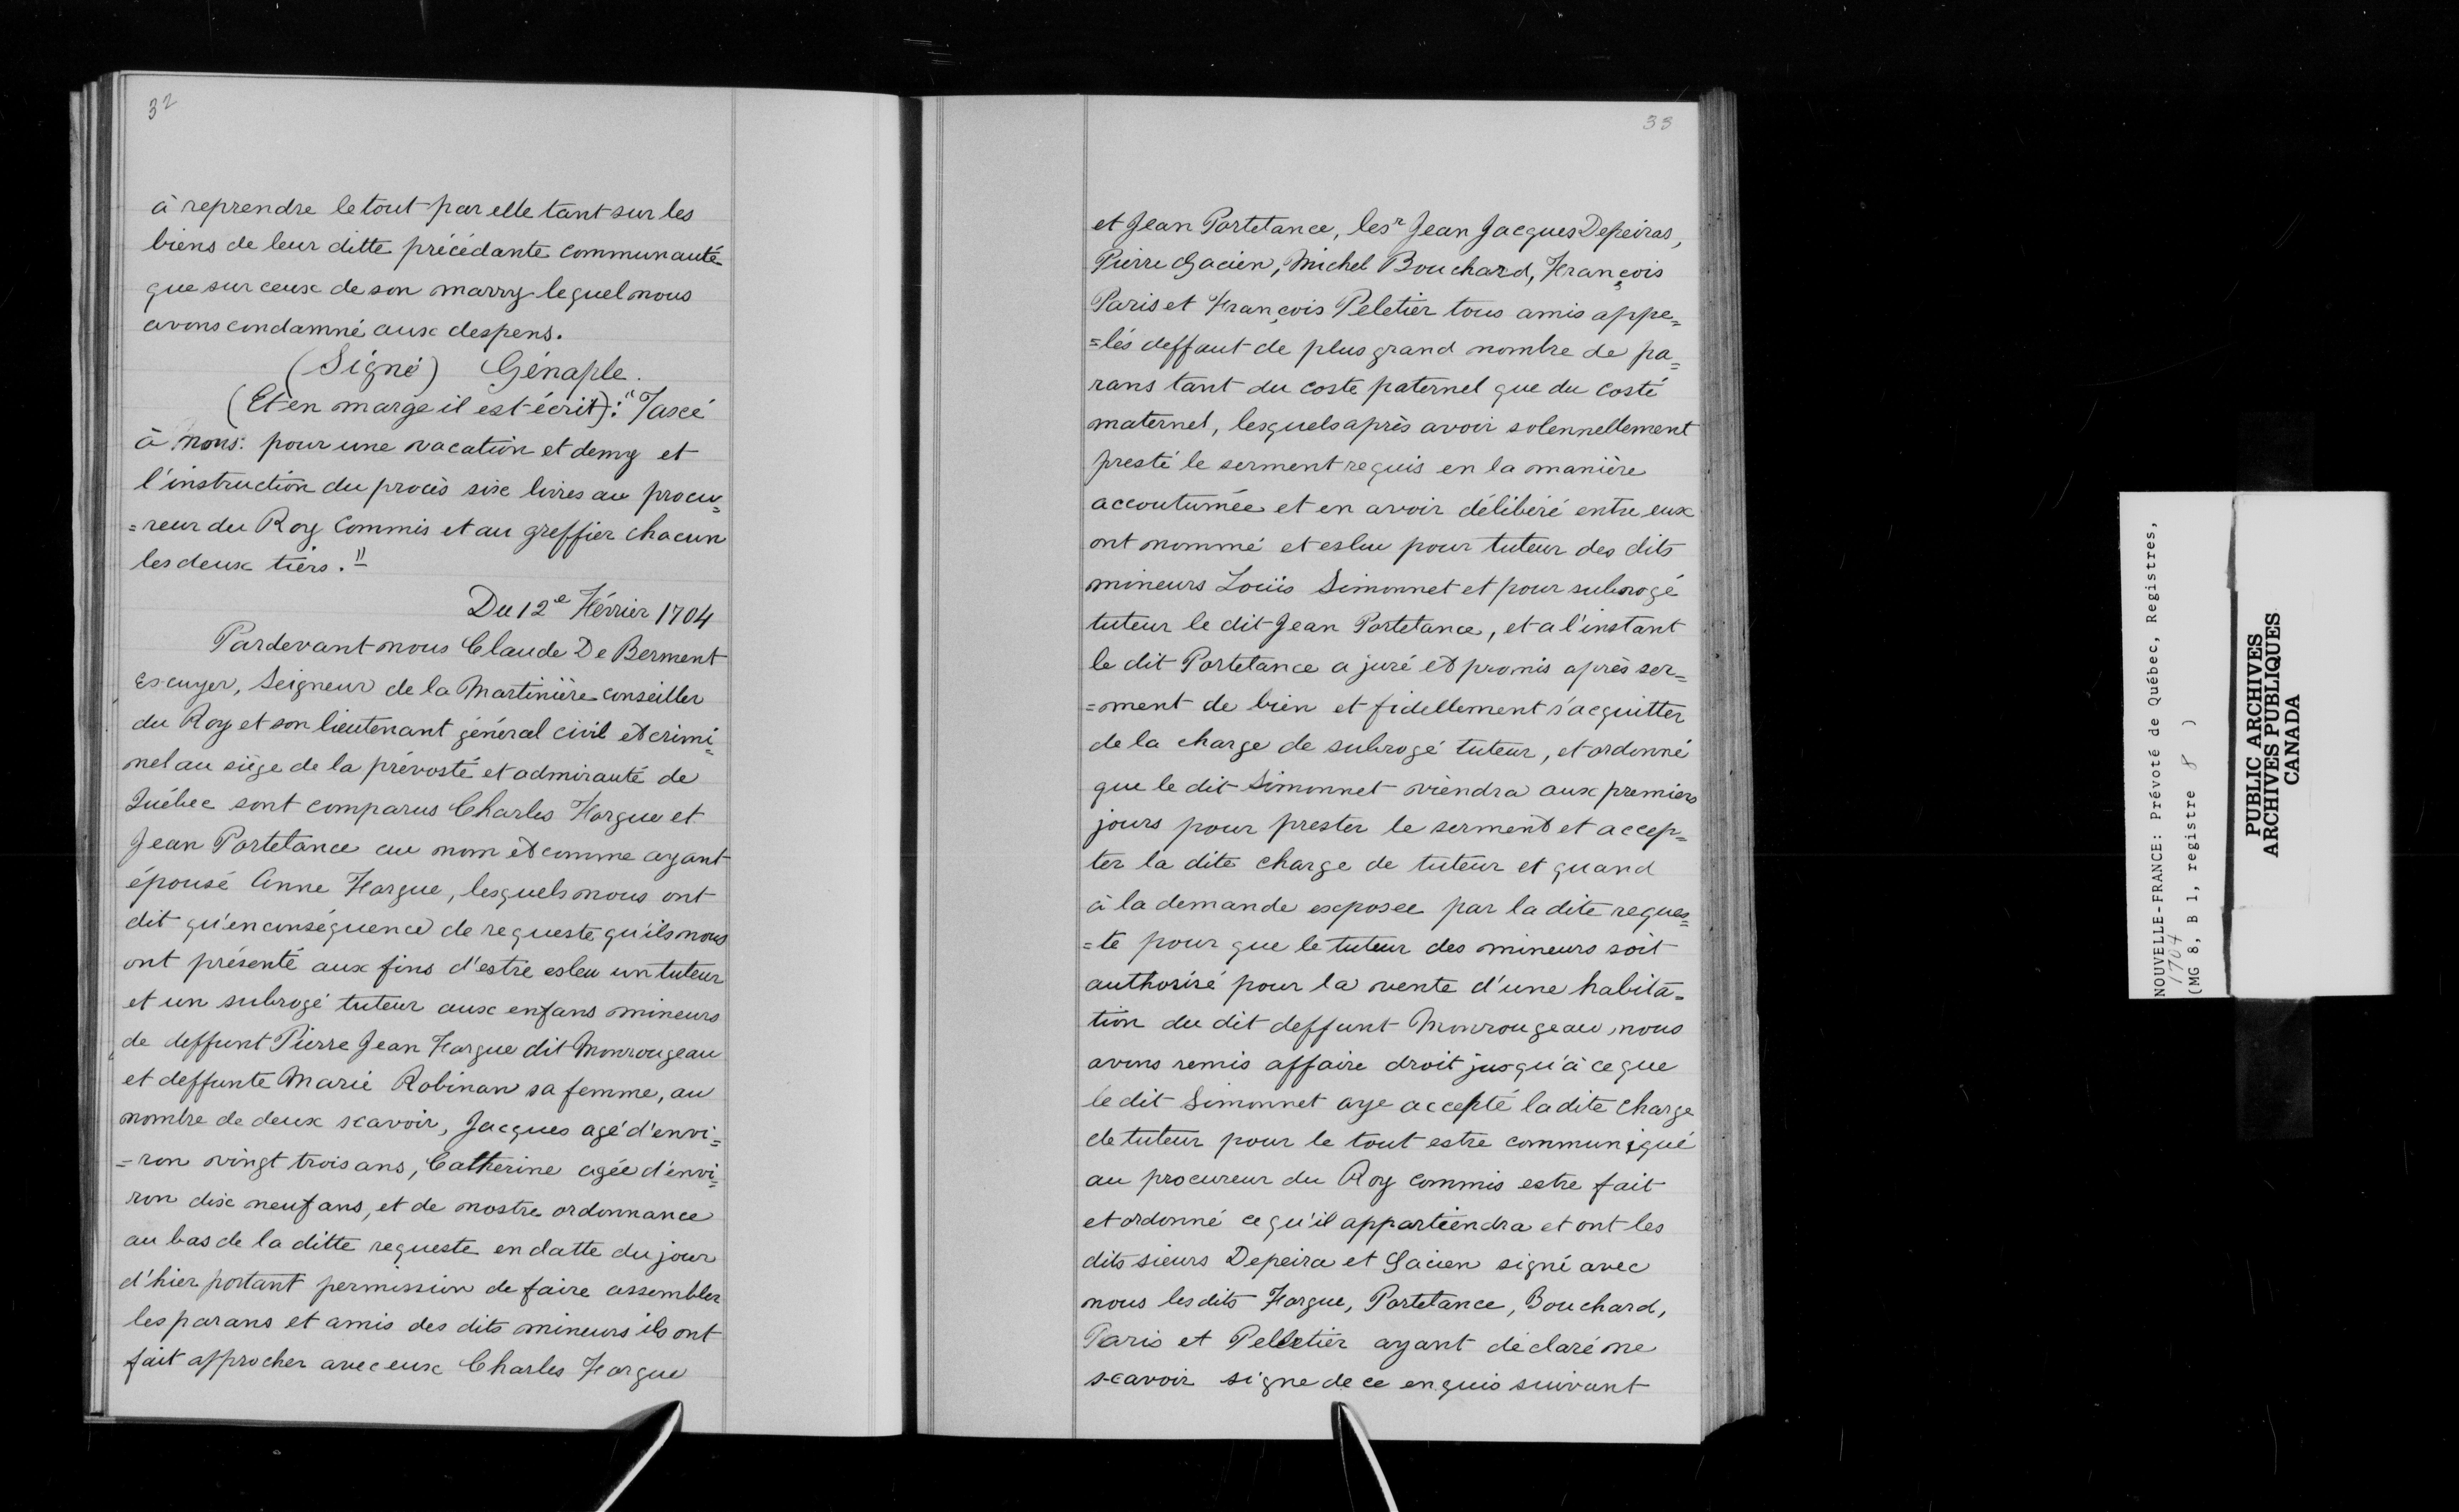 32
à reprendre le tout par elle tant sur les
biens de leur ditte précédante communauté
que sur ceux de son marry lequel nous
avons condamné aux despens.
(Signé) Génaple.
(Et en marge il est écrit): "Taxé
à nous: pour une vacation et demy et
l'instruction du procès six livres au procu=
=reur du Roy Commis et au greffier chacun
les deux tiers."
Du 12e Février 1704
Pardevant nous Claude De Berment
Escuyer, Seigneur de la Martinière conseiller
du Roy et son lieutenant général civil et crimi=
nel au siège de la prévosté et admirauté de
Québec sont comparus Charles Fargue et
Jean Portetance au nom et comme ayant
épousé Anne Fargue, lesquels nous ont
dit qu'en conséquence de requeste qu'ils nous
ont présenté aux fins d'estre esleu un tuteur
et un subrogé tuteur aux enfans mineurs
de deffunt Pierre Jean Fargue dit Monrougeau
et deffunte Marie Robinan sa femme, au
nombre de deux scavoir, Jacques agé d'envi=
=ron vingt trois ans, Catherine agée d'envi=
ron dix neuf ans, et de nostre ordonnance
au bas de la ditte requeste en datte du jour
d'hier portant permission de faire assembler
les parans et amis des dits mineurs ils ont
fait approcher avec eux Charles Fargue
33
et Jean Portetance, le sr Jean Jacques Depeiras,
Pierre Gacien, Michel Bouchard, François
Paris et François Peletier tous amis appe=
=lés deffaut de plus grand nombre de pa=
rans tant du coste paternel que du costé
maternel, lesquels après avoir solennellement
presté le serment requis en la manière
accoutumée et en avoir délibéré entre eux
ont nommé et eslue pour tuteur des dits
mineurs Louis Simonnet et pour subrogé
tuteur le dit Jean Portetance, et a l'instant
le dit Portetance a juré et promis après ser=
=ment de bien et fidellement s'acquitter
de la charge de subrogé tuteur, et ordonné
que le dit Simonnet viendra aux premiers
jours pour prester le serment et accep=
ter la dite charge de tuteur et quand
à la demande exposee par la dite reques=
=te pour que le tuteur des mineurs soit
authorisé pour la vente d'une habita=
tion du dit deffunt Monrougeau, nous
avons remis affaire droit jusqu'à ce que
le dit Simonnet aye accepté la dite charge
de tuteur pour le tout estre communiqué
au procureur du Roy commis estre fait
et ordonné ce qu'il appartiendra et ont les
dits sieurs Depeira et Gacien signé avec
nous les dits Fargue, Portetance, Bouchard,
Paris et Pelletier ayant déclaré ne
scavoir signe de ce enquis suivant
NOUVELLE-FRANCE: Prévoté de Québec, Registres,
1704
(MG 8, B 1, registre 8 )
PUBLIC ARCHIVES
ARCHIVES PUBLIQUES
CANADA